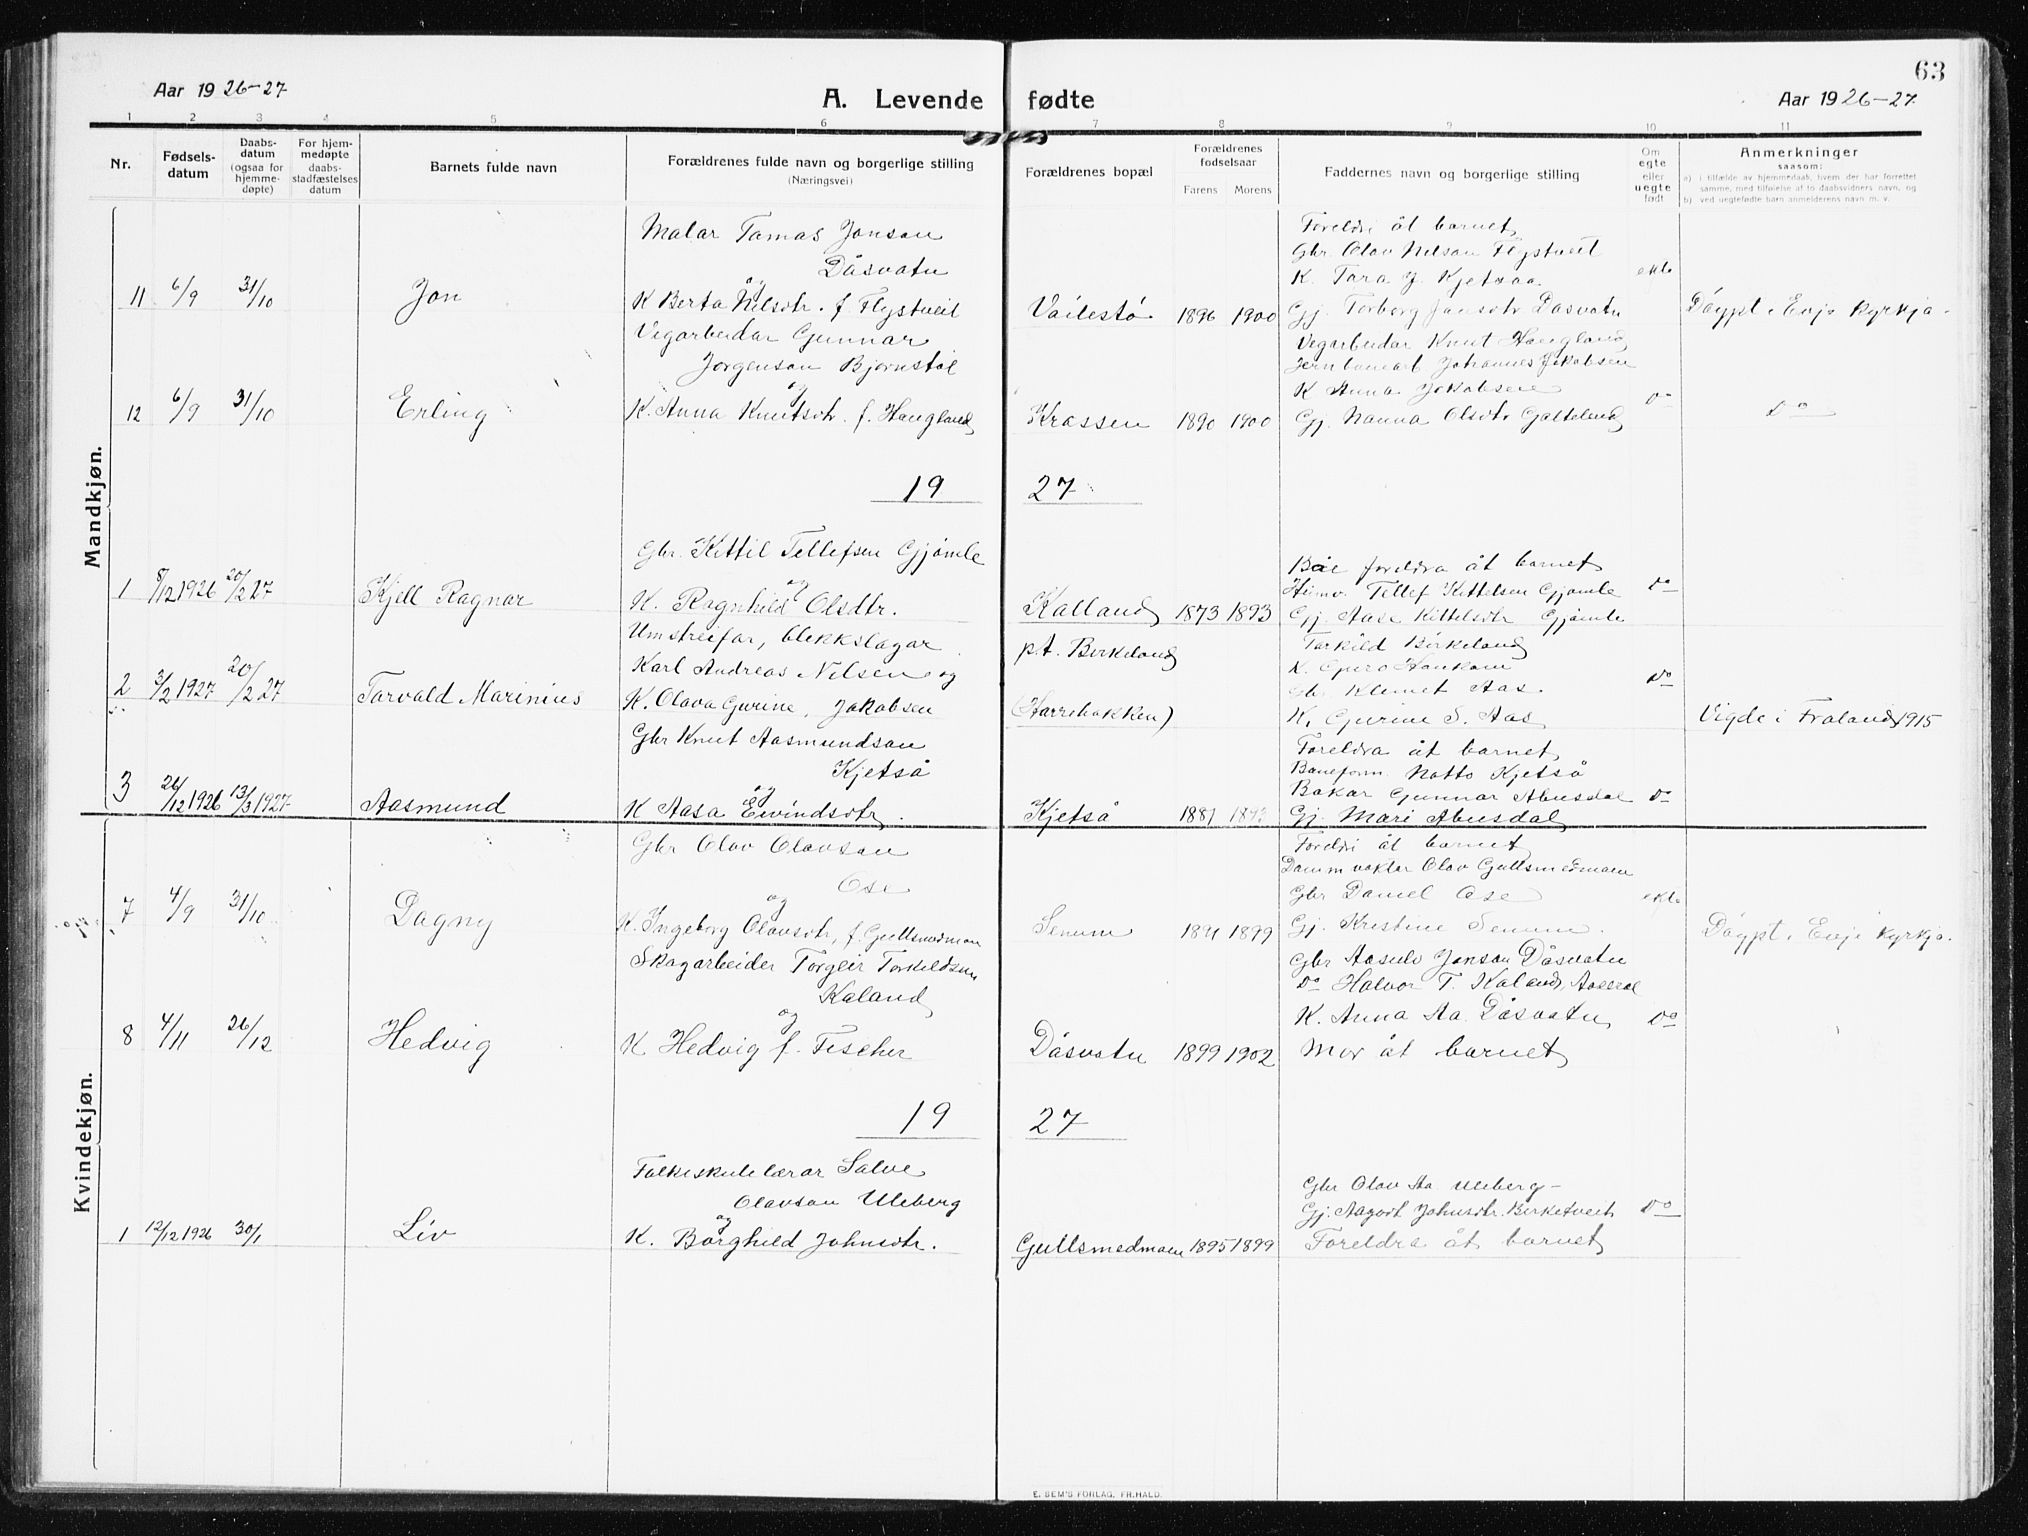 63
Aar 1926-27
A. Levende fødte
Aar 1926-27
1 2 3 4 5 6 7 8 9 10 11
Nr.
Fødsels-
datum
Daabs-
datum
(ogsaa for
hjemme-
døpte)
For hjem-
medøpte
daabs-
stadfæstelses
datum
Barnets fulde navn
Forældrenes fulde navn og borgerlige stilling
(Næringsvei)
Forældrenes bopæl
Forældrenes
fødselsaar
Farens Morens
Faddernes navn og borgerlige stilling
Om
egte
eller
uegte
født
Anmerkninger
saasom:
a) i tilfælde av hjemmedaab, hvem der har forrettet
samme, med tilføielse af to daabsvidners navn, og
b) ved uegtefødte barn anmelderens navn m. v.
Mandkjøn.
11 6/9 31/10 Jon
Malar Tamas Jonson
Dåsvatn
og
K Berta Nilsdtr. f. Flystveit
Vailestø 1896 1900
Foreldri åt barnet
Gbr. Olav Nilson Flystveit
K. Tara J. Kjetsaa
Gj. Torborg Jonsdtr Dåsvatn
ekte
Døypt i Evje kyrkja.
12 6/9 31/10 Erling
Vegarbeidar Gunnar
Jorgenson Bjørnstøl
og
K. Anna Knutsdtr. f. Haugland
Krossen 1890 1900
Vegarbeidar Knut Haugland
Jernbanearb Johannes Jakobsen
K Anna Jakobsen
Gj. Nanna Olsdtr Galteland
Do
Do
19 27
1 8/12 1926 20/2 27 Kjell Ragnar
Gbr. Kittil Tellefsen Gjømle
og
K. Ragnhild Olsdtr.
Kalland 1873 1893
Båe foreldra åt barnet
Heimv. Tellef Kittelsen Gjømle
Gj. Aase Kittelsdtr Gjømle
Do
2 3/2 1927 20/2 27 Tarvald Marinius
Umstreifar, blekkslagar
Karl Andreas Nilsen og
K. Olava Gurine Jakobsen
pt. Birkeland
(Harrebakken)
Tarkild Birkeland
K. Guro Haukom
Gbr. Klemet Aas.
K. Gurine S. Aas
Do
Vigde i Froland 1915
3 26/12 1926 13/3 1927 Aasmund
Gbr Knut Aasmundsan
Kjetså
og
K Aasa Eivindsdtr.
Kjetså 1881
Foreldra åt barnet
Baneform. Notto Kjetså
Bakar Gunnar Abusdal
Gj. Mari Abusdal
Do
Kvindekjøn.
7 4/9 31/10 Dagny
Gbr Olav Olavsan
Ose
og
K. Ingeborg Olavsdtr, f. Gullsmedmoen
Senum 1891 1899
Foreldri åt barnet
Dammvaktar Olav Gullsmedmoen
Gbr Daniel Ose
Gj. Kristine Senum.
ekte
Døypt i Evje kyrkja.
8 4/11 26/12 Hedvig
Skogarbeider Torgeir Torkildsen
Kaland
og
K Hedvig f. Fischer
Dåsvatn 1899 1902
Gbr Aasulv Jonson Dåsvatn
Do Halvor T. Kaland, Aaseral
K. Anna Aa. Dåsvatn
Mor åt barnet
Do
19 27
1 12/12 1926 30/1 Liv
Folkeskulelærar Salve
Olavson Uleberg
og
K. Borghild Johnsdtr.
Gullsmedmoen 1895 1899
Gbr Olav Aa. Uleberg -
Gj. Aagodt Johnsdtr. Birketveit
Foreldra åt barnet
Do
E. SEM'S FORLAG, FR.HALD.